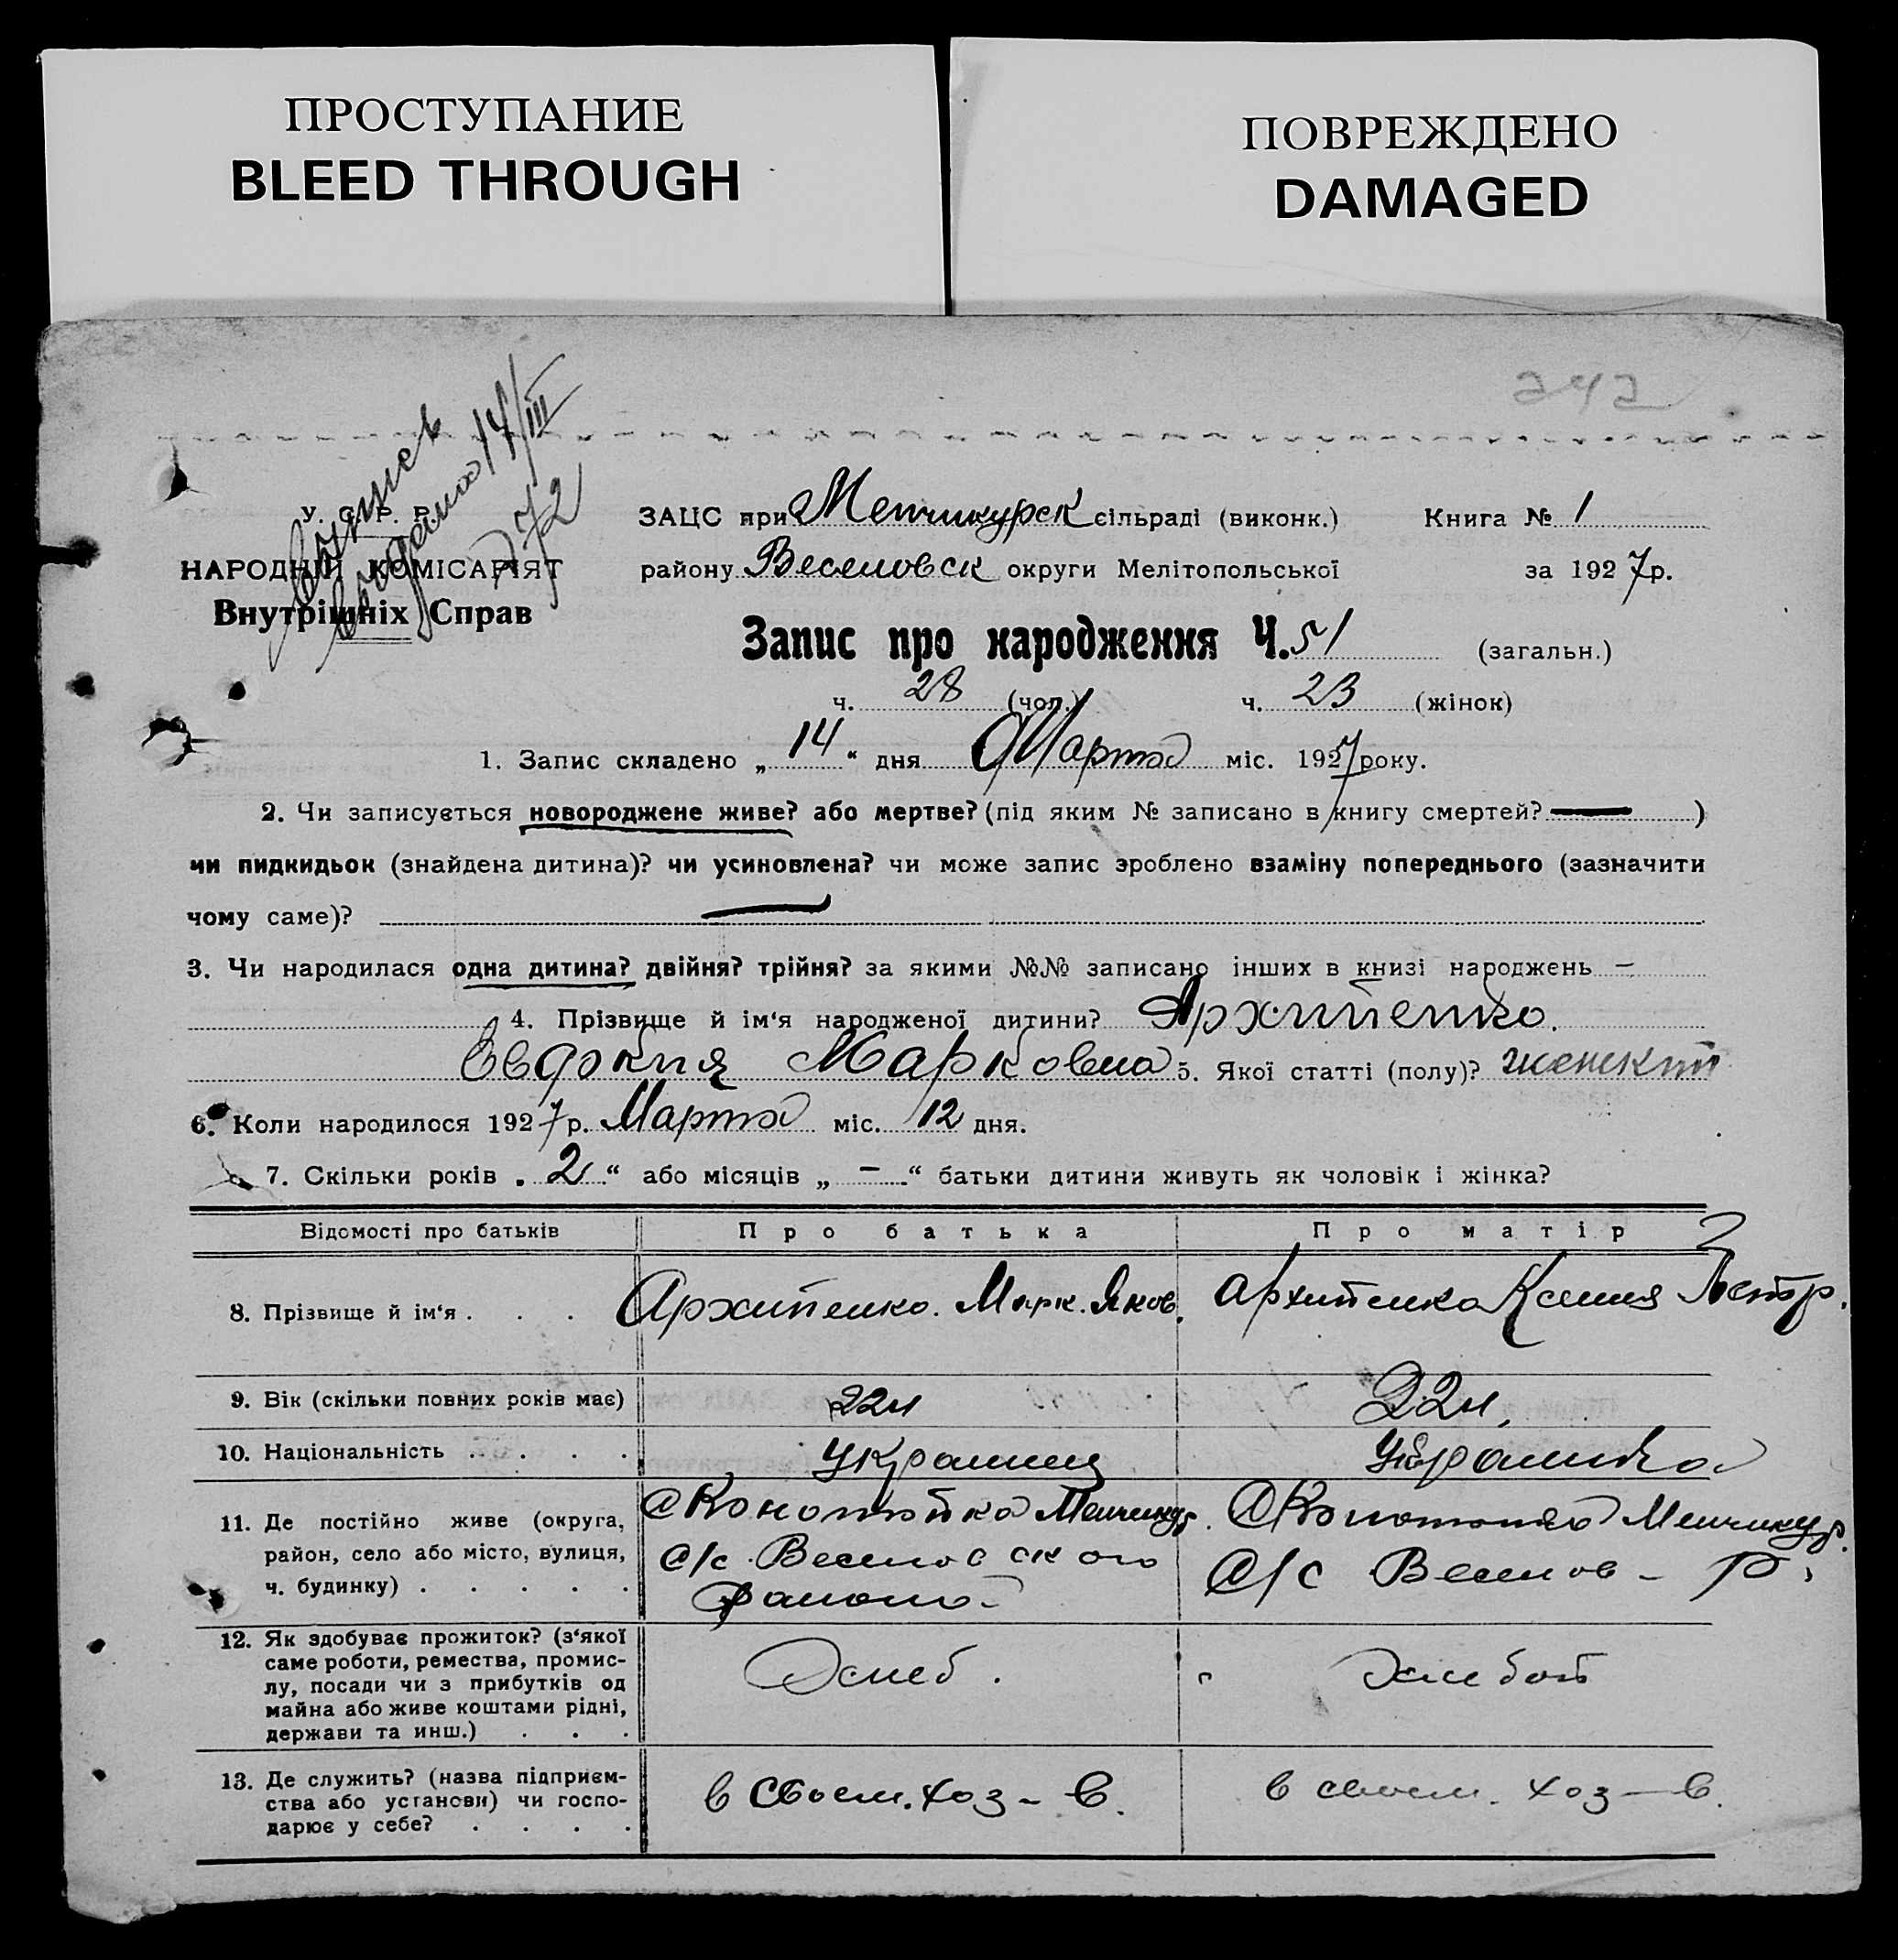 ПРОСТУПАНИЕ
BLEED THROUGH
ПОВРЕЖДЕНО
DAMAGED
242
Выпись
выдана 14/III
272
У. С. Р. Р.
НАРОДНІЙ КОМІСАРІЯТ
Внутрішніх Справ
ЗАЦС при Менчикурск сільраді (виконк.) Книга № 1
району Веселовск округи Мелітопольської за 1927р.
Запис про народження Ч. 51 (загальн.)
ч. 28 (чол.) ч. 23 (жінок)
1. Запис складено „ 14 “ дня Марта міс. 1927 року.
2. Чи записується новороджене живе? або мертве? (під яким № записано в книгу смертей? — )
чи пидкидьок (знайдена дитина)? чи усиновлена? чи може запис зроблено взаміну попереднього (зазначити
чому саме)? —
3. Чи народилася одна дитина? двійня? трійня? за якими №№ записано інших в книзі народжень —
4. Прізвище й ім‘я народженої дитини? Архипенко.
Евдокия Марковна 5. Якої статті (полу)? женский
6. Коли народилося 1927 р. Марта міс. 12 дня.
7. Скільки років „ 2 “ або місяців „ — “ батьки дитини живуть як чоловік і жінка?
Відомості про батьків Про батька Про матір
8. Прізвище й ім‘я . . . Архипенко. Марк. Яков. Архипенко Ксения Петр.
9. Вік (скільки повних років має) 22 22
10. Національність . . . . Украинец Украинка
11. Де постійно живе (округа, район, село або місто, вулиця, ч. будинку) . . . . .
Менчикур.
с/с. Веселовского
района
Менчикур.
с/с Веселов - р.
12. Як здобуває прожиток? (з‘якої саме роботи, ремества, промислу, посади чи з прибутків од майна або живе коштами рідні, держави та инш.) . . .
Хлеб. Хлебоп
13. Де служить? (назва підприємства або установи) чи господарює у себе? . . . .
в своем. хоз - в. в своем. хоз — в.